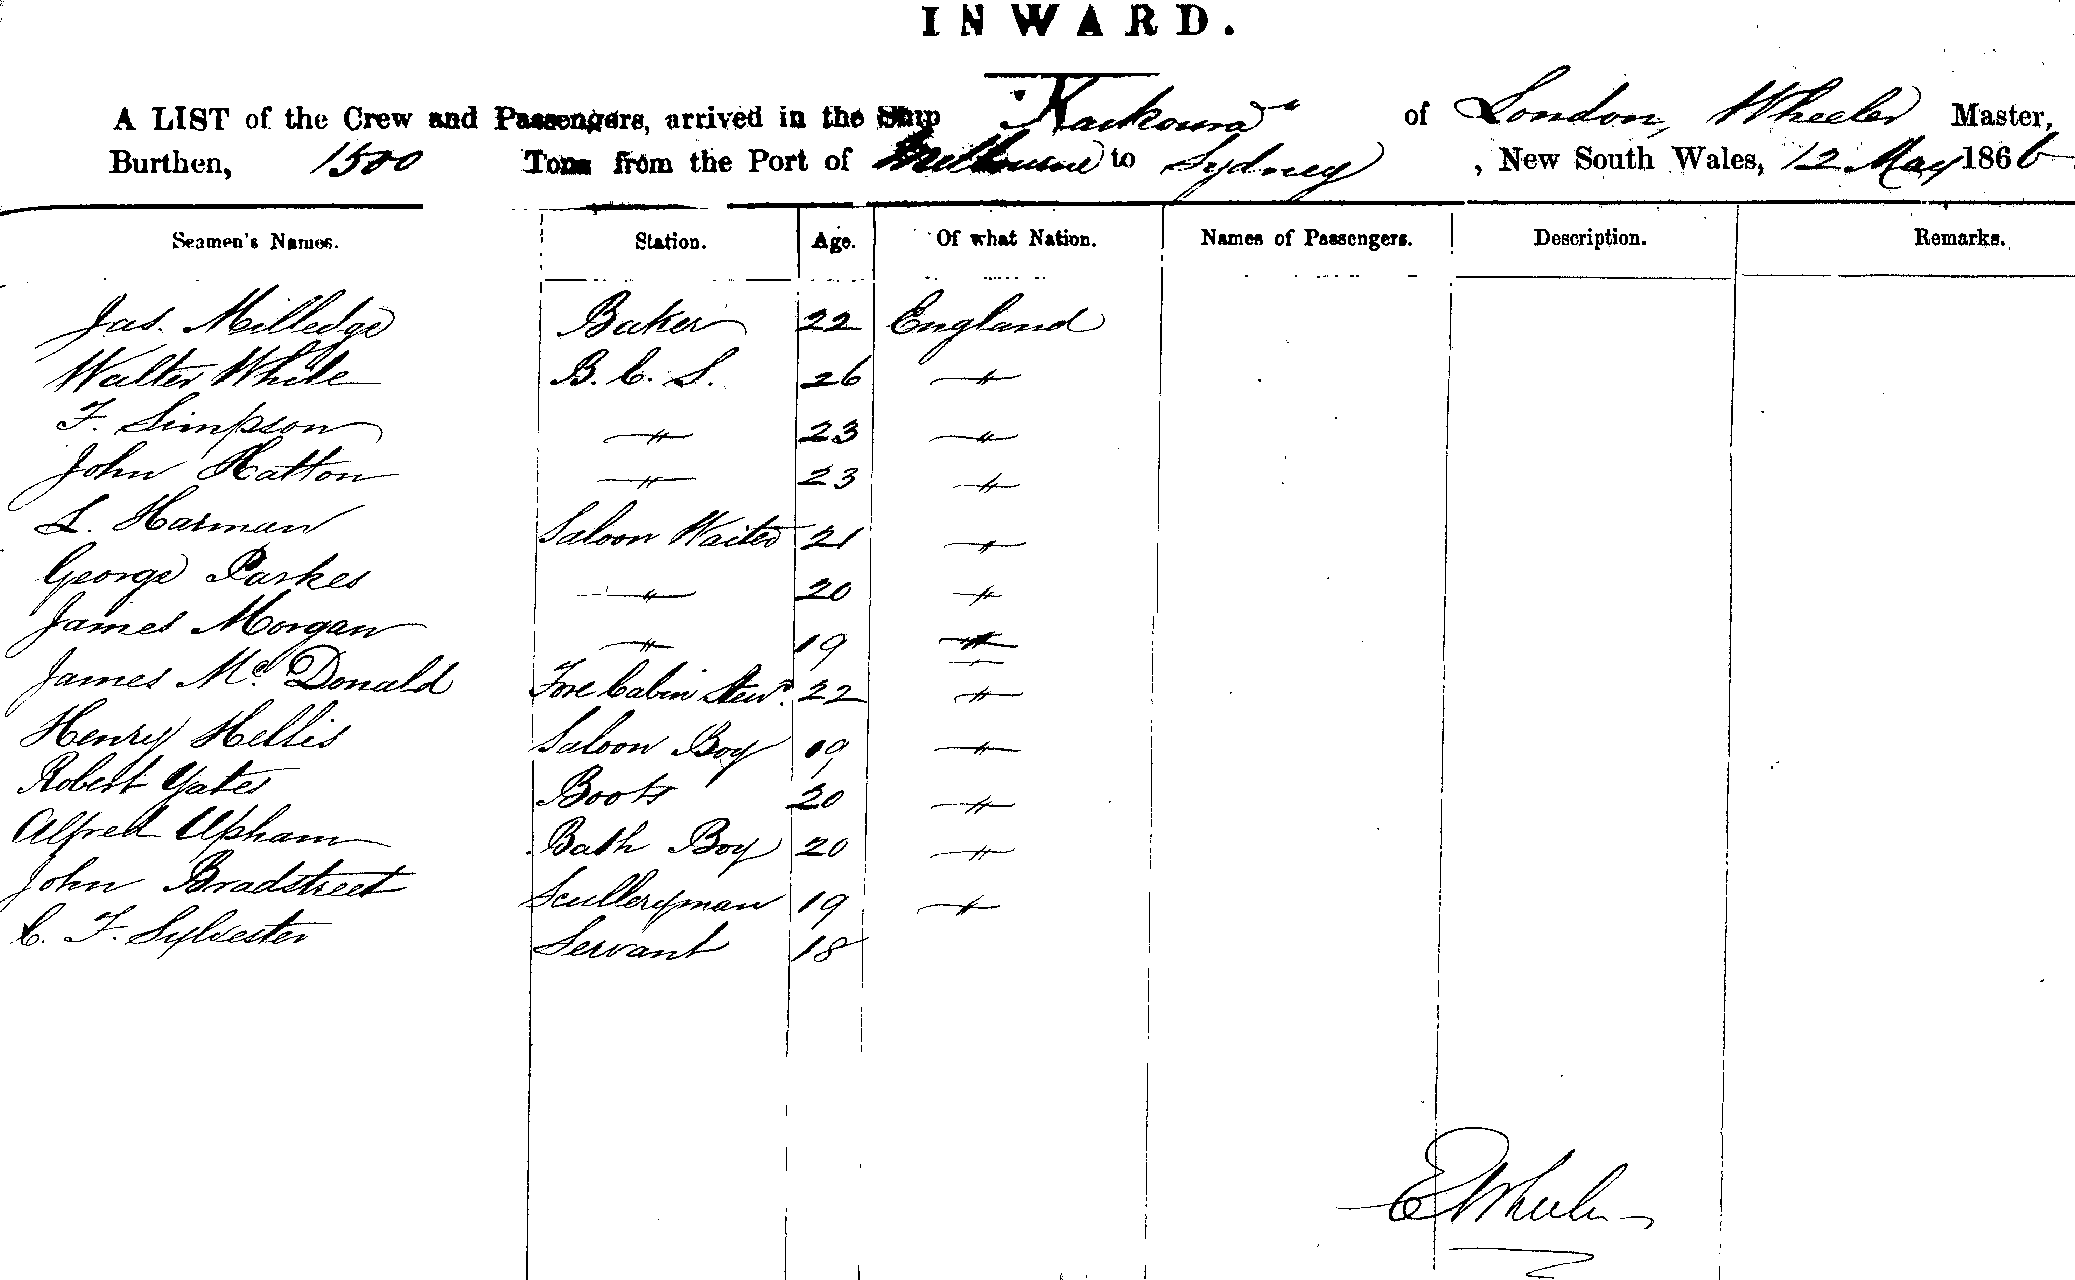 INWARD.
A LIST of the Crew and Passengers, arrived in the Ship "Kaikoura" of London, Wheeler Master,
Burthen, 1500 Tons from the Port of Melbourne to Sydney, New South Wales, 12 May 1866
Seamen's Names. Station. Age. Of what Nation. Names of Passengers. Description. Remarks.
Jas. Milledge Baker 22 England
Walter White B. C. S. 26 〃
F. Simpson 〃 23 〃
John Hatton 〃 23 〃
L. Harman Saloon Waiter 21 〃
George Parkes 〃 20 〃
James Morgan 〃 19 〃
James Mc Donald Fore Cabin Stewd. 22 〃
Henry Hellis Saloon Boy 19 〃
Robert Yates Boots 20 〃
Alfred Upham Bath Boy 20 〃
John Bradstreet Sculleryman 19 〃
C. F. Sylvester Servant 18
E Wheeler